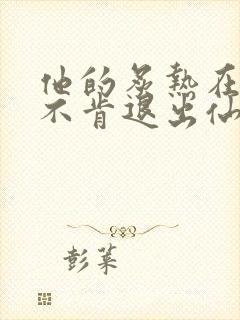 他的炙热在
不肯退出仙
彭莱